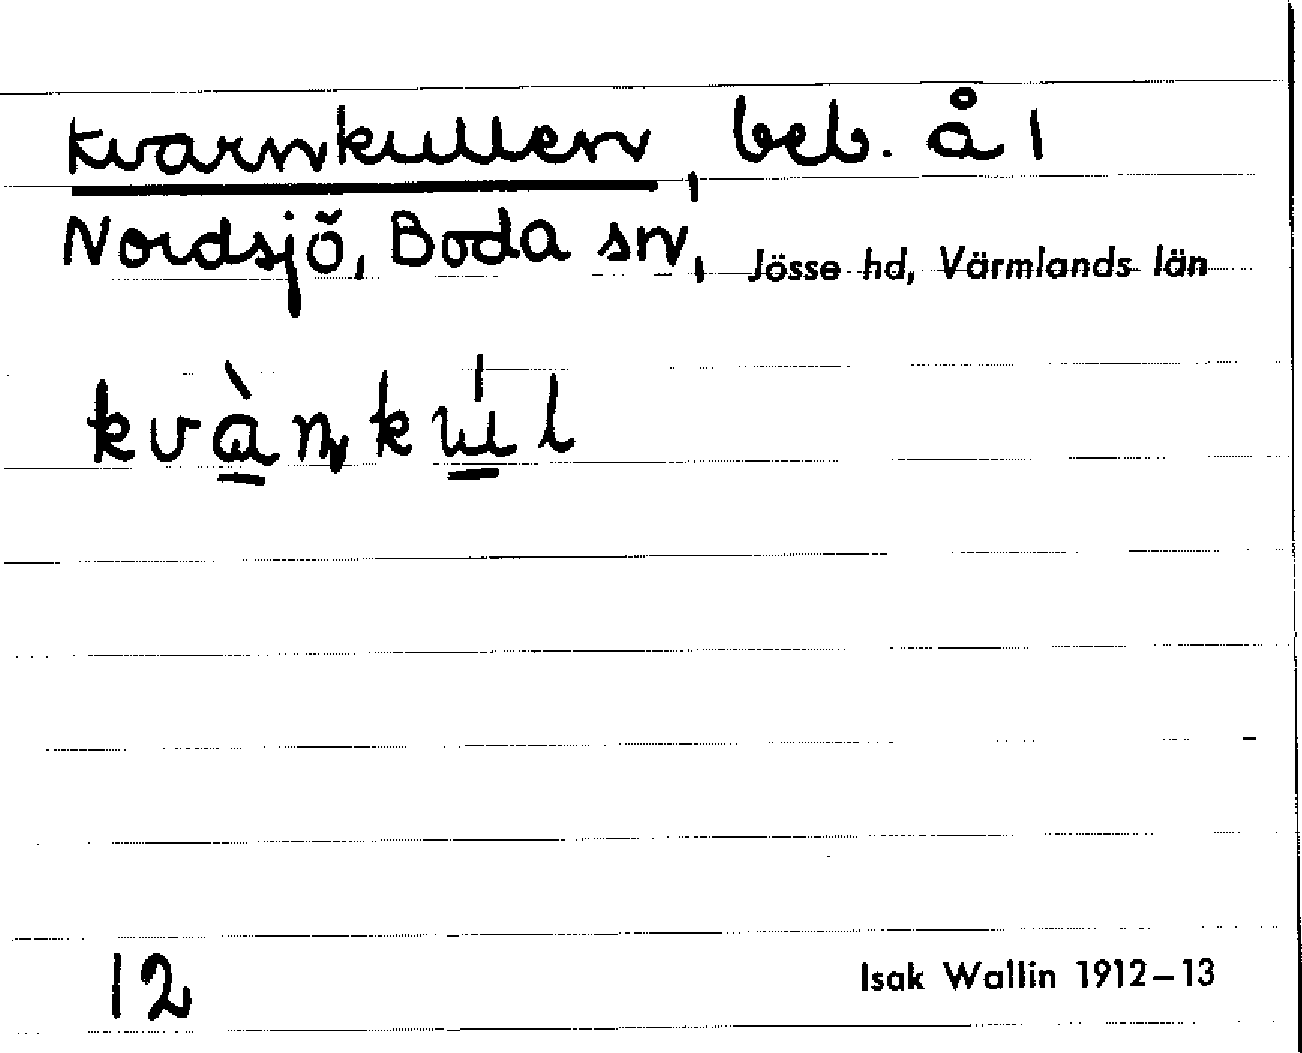 Kvarnkullen, beb. å 1
Nordsjö, Boda sn, Jösse hd, Värmlands län
kvàn̡kúl
12
Isak Wallin 1912–13